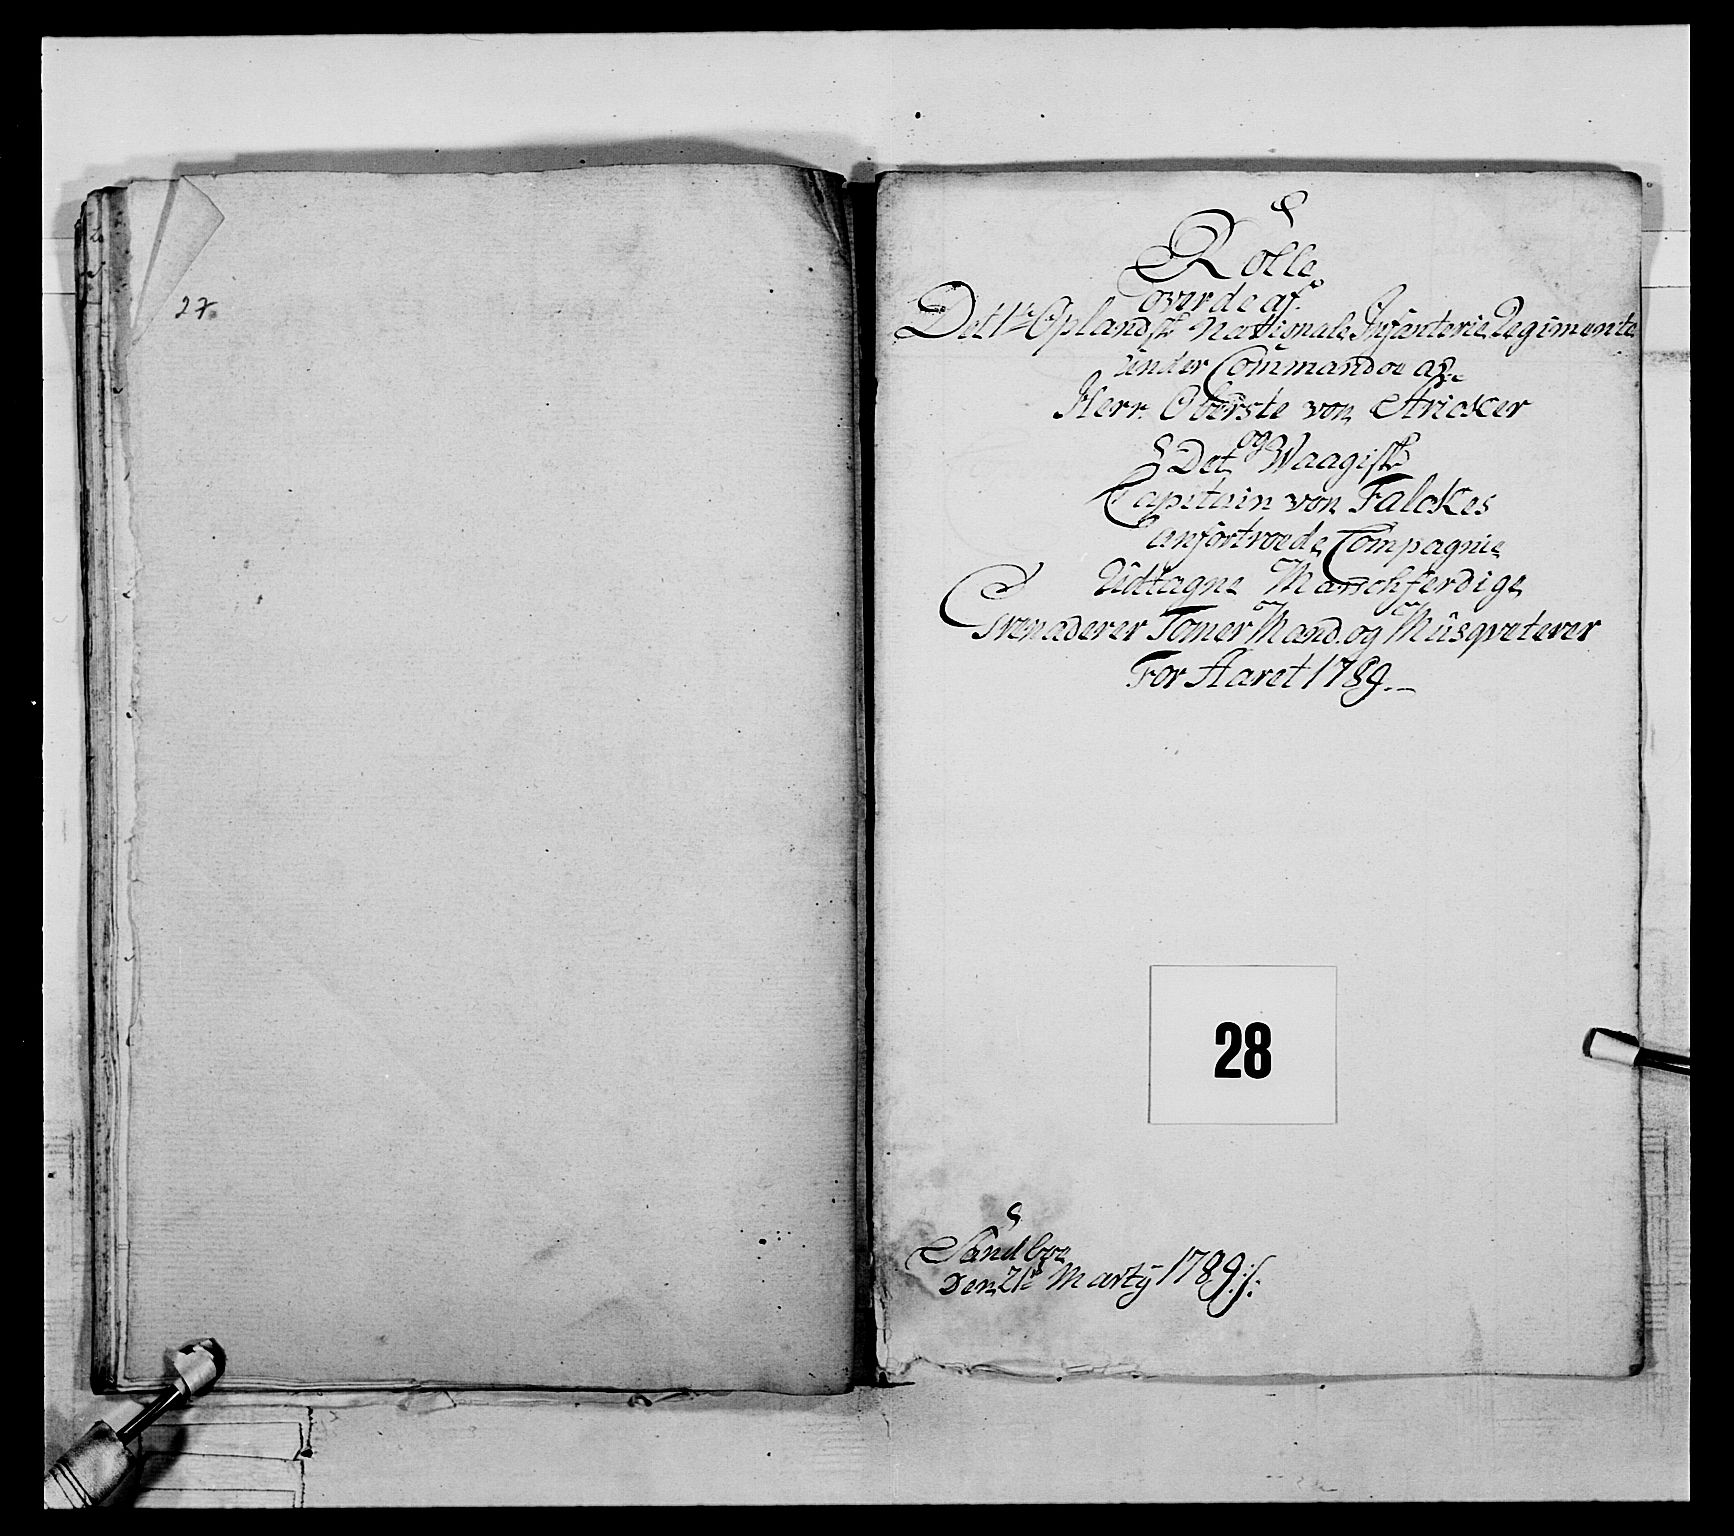 27.
Rolle
over de af
Det 1te Oplandske Nationale Infanterie Regimente
under Commandoe af
Herr Oberste von Stricker
og
Det Waagiske
Capitain von Falckes
anfortroede Compagnie
Udtagne Marschferdige
Grenaderer Tømer Mand og Musqveterer
For Aaret 1789.
28
Sandboe
Den 21de Marty 1789